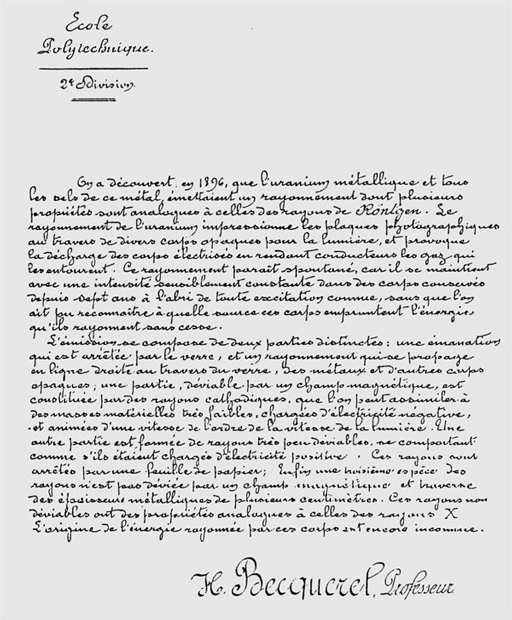 Ecole
Polytechnique.
2e Division.
On a découvert, en 1896, que l'uranium métallique et tous
les sels de ce métal, émettaient un rayonnement dont plusieurs
propriétés sont analogues à celles des rayons de Röntgen. Le
rayonnement de l'uranium impressionne les plaques photographiques
au travers de divers corps opaques pour la lumière, et provoque
la décharge des corps électrisés en rendant conducteurs les gaz qui
les entourent. Ce rayonnement paraît spontané, car il se maintient
avec une intensité sensiblement constante dans des corps conservés
depuis sept ans à l'abri de toute excitation connue, sans que l'on
ait pu reconnaître à quelle source ces corps empruntent l'énergie
qu'ils rayonnent sans cesse.
L'émission se compose de deux parties distinctes : une émanation
qui est arrêtée par le verre, et un rayonnement qui se propage
en ligne droite au travers du verre, des métaux et d'autres corps
opaques ; une partie, déviable par un champ magnétique, est
constituée par des rayons cathodiques, que l'on peut assimiler à
des masses matérielles très faibles, chargées d'électricité négative,
et animées d'une vitesse de l'ordre de la vitesse de la lumière. Une
autre partie est formée de rayons très peu déviables, se comportant
comme s'ils étaient chargés d'électricité positive. Ces rayons sont
arrêtés par une feuille de papier ; Enfin une troisième espèce des
rayons n'est pas déviée par un champ magnétique et traverse
des épaisseurs métalliques de plusieurs centimètres. Ces rayons non
déviables ont des propriétés analogues à celles des rayons X
L'origine de l'énergie rayonnée par ces corps est encore inconnue.
H. Becquerel, Professeur